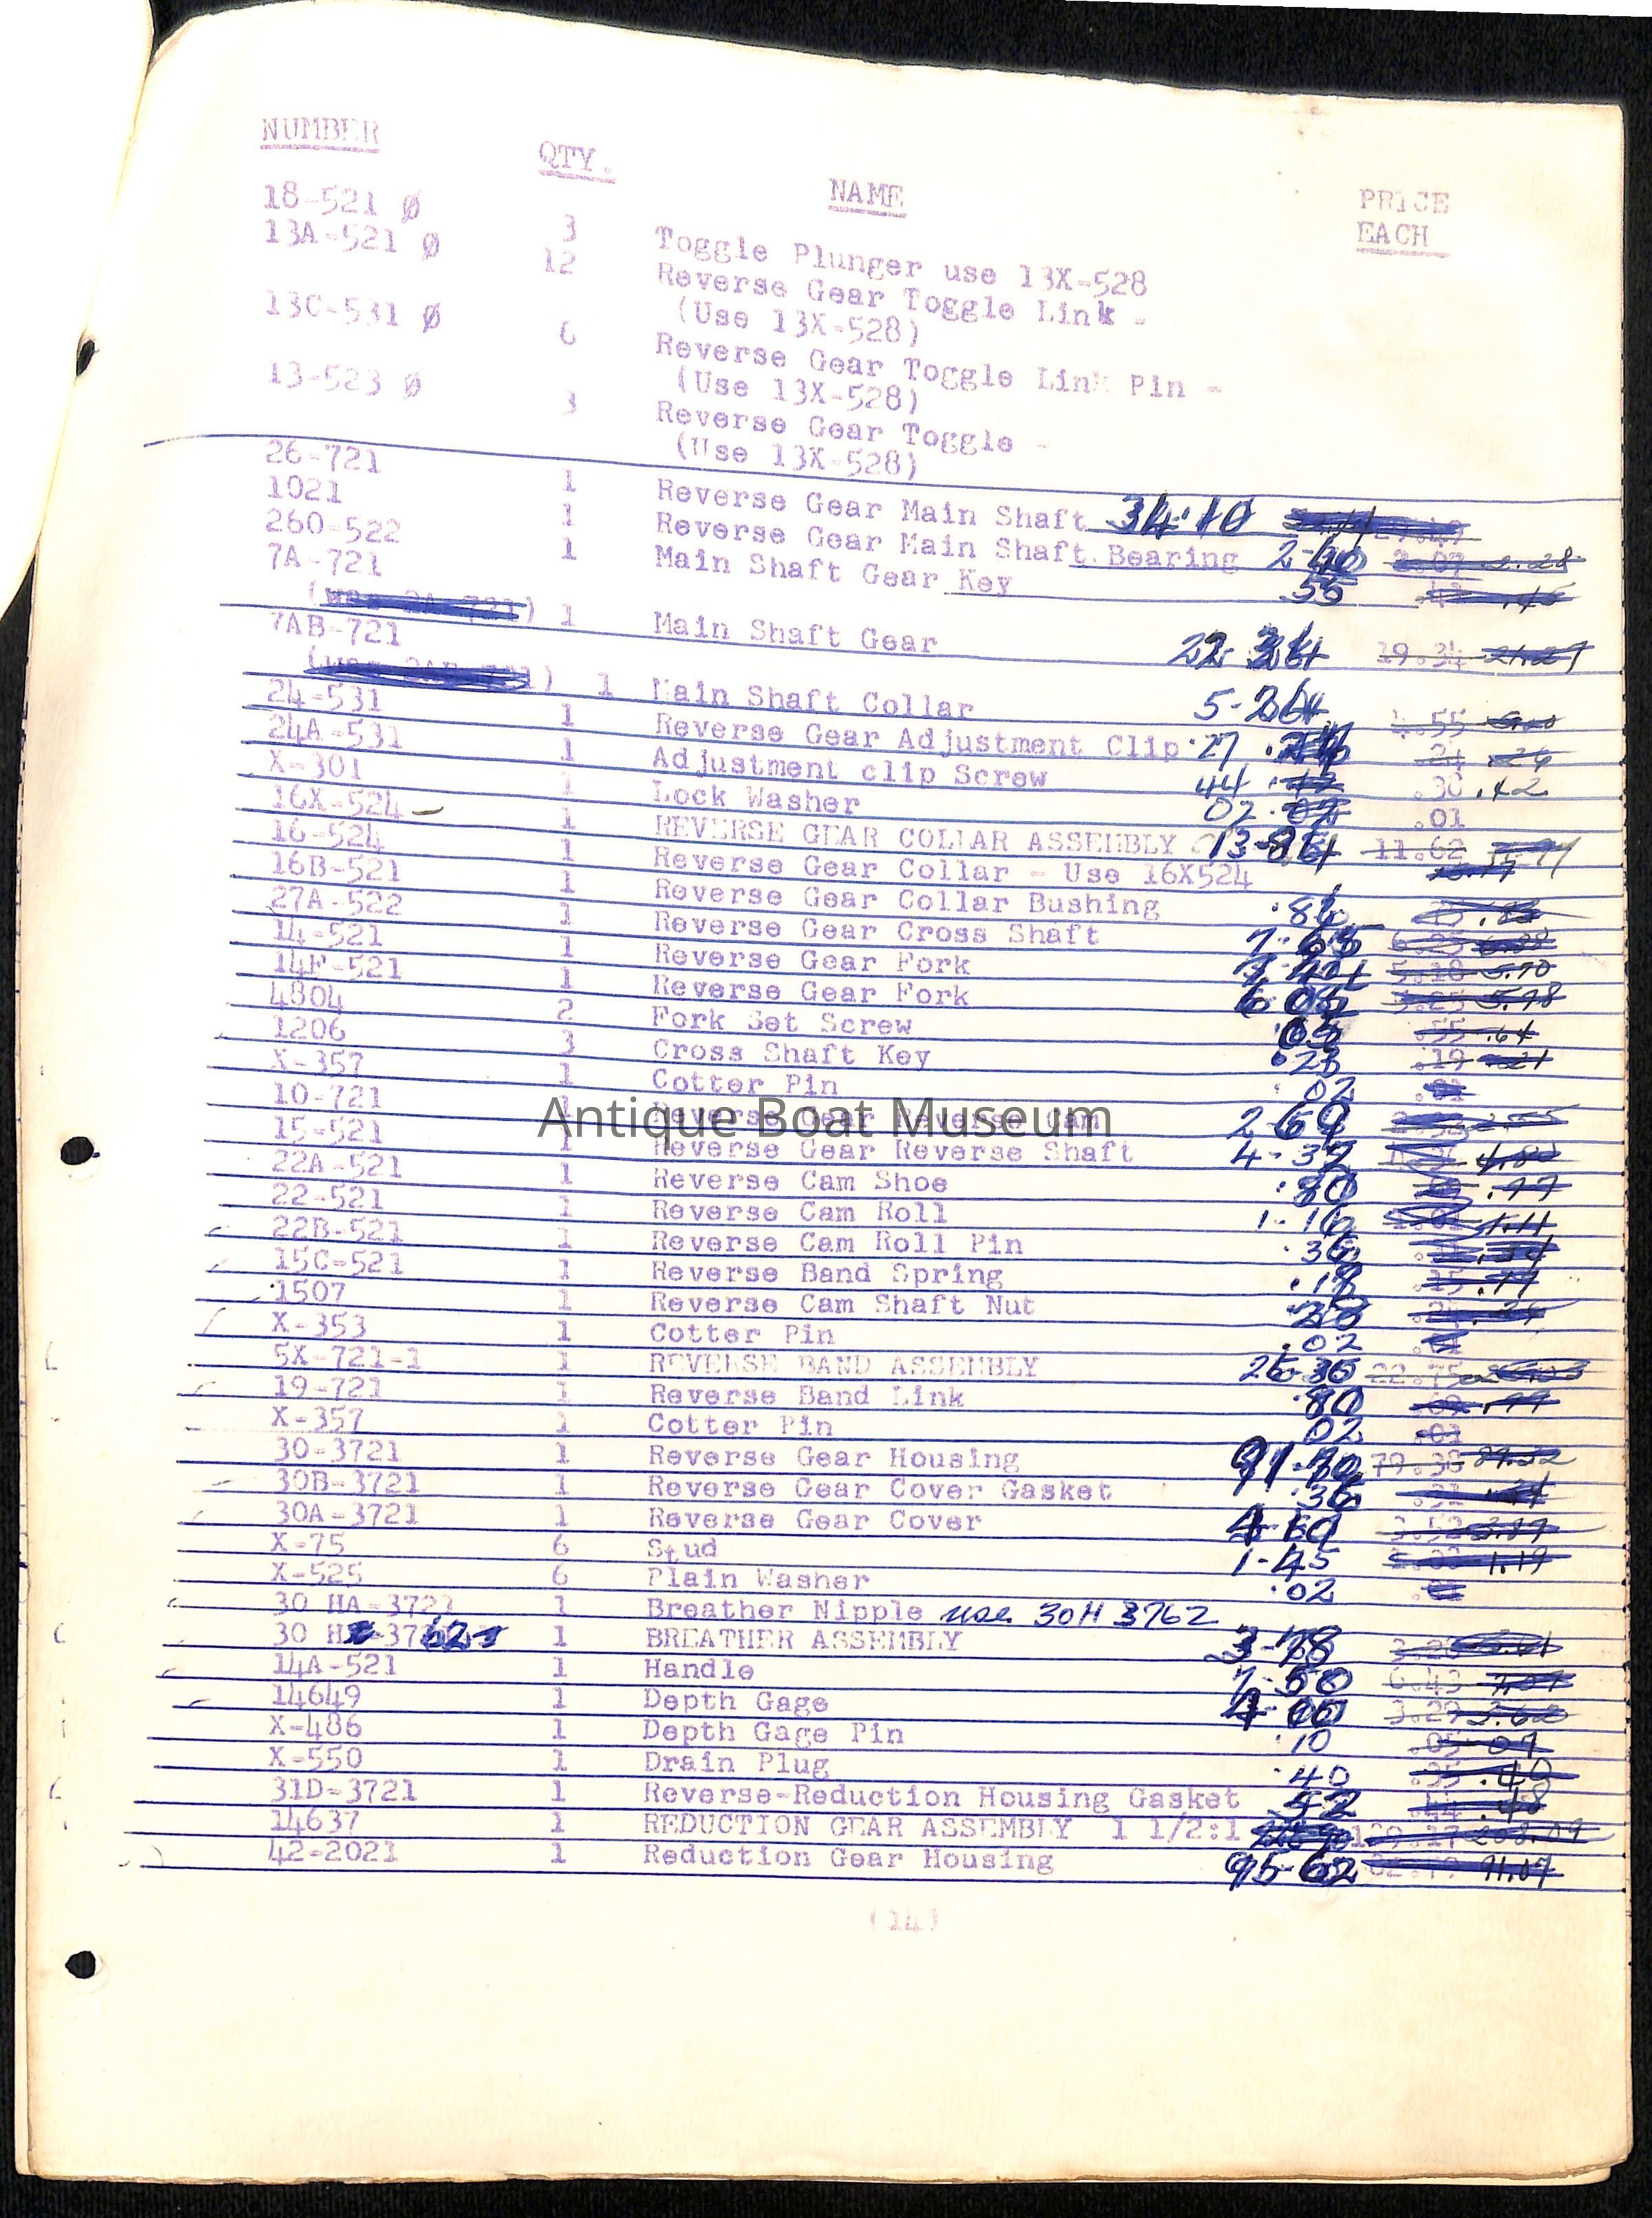 NUMBER QTY. NAME PRICE EACH
18-521 Ø 3 Toggle Plunger use 13X-528
13A-521 Ø 12 Reverse Gear Toggle Link -
(Use 13X-528)
13C-531 Ø 6 Reverse Gear Toggle Link Pin -
(Use 13X-528)
13-523 Ø 3 Reverse Gear Toggle -
(Use 13X-528)
26-721 1 Reverse Gear Main Shaft 34.10
1021 1 Reverse Gear Main Shaft Bearing 2-40 2.28
260-522 1 Main Shaft Gear Key 55 .46
7A-721
1 Main Shaft Gear 22 19.34 21.27
7AB-721
1 Main Shaft Collar 5-264 4.55
24-531 1 Reverse Gear Adjustment Clip .27 .24 .26
24A-531 1 Adjustment clip Screw 44 .30 .42
X-301 1 Lock Washer 02 .01
16X-524 1 REVERSE GEAR COLLAR ASSEMBLY 13-86 11.62
16-524 1 Reverse Gear Collar - Use 16X524
16B-521 1 Reverse Gear Collar Bushing .86 .83
27A-522 1 Reverse Gear Cross Shaft
14-521 1 Reverse Gear Fork 5.18 5.70
14F-521 1 Reverse Gear Fork 5.78
4804 2 Fork Set Screw .55 .64
1206 3 Cross Shaft Key .23 .19 .21
X-357 1 Cotter Pin .02
10-721 1 Reverse Gear Reverse Cam 2-69 2.55
15-521 1 Reverse Gear Reverse Shaft 4-37 4.80
22A-521 1 Reverse Cam Shoe .80 .77
22-521 1 Reverse Cam Roll 1-16 1.11
22B-521 1 Reverse Cam Roll Pin .36 .34
15C-521 1 Reverse Band Spring .18 .15
1507 1 Reverse Cam Shaft Nut .28
X-353 1 Cotter Pin .02
5X-721-1 1 REVERSE BAND ASSEMBLY 26-36 22.75
19-721 1 Reverse Band Link .80
X-357 1 Cotter Pin .02 .01
30-3721 1 Reverse Gear Housing 91-70 79.38 87.32
30B-3721 1 Reverse Gear Cover Gasket .36 .31
30A-3721 1 Reverse Gear Cover 3.52 3.87
X-75 6 Stud 1-45 1.19
X-525 6 Plain Washer .02
30 HA-3721 1 Breather Nipple use 30H 3762
30 H -3762 1 BREATHER ASSEMBLY 3-78
14A-521 1 Handle 7-50 6.43 7.07
14649 1 Depth Gage 3.29 3.62
X-486 1 Depth Gage Pin .10 .05 07
X-550 1 Drain Plug .40 .35 .40
31D-3721 1 Reverse-Reduction Housing Gasket 52 .44 .48
14637 1 REDUCTION GEAR ASSEMBLY 1 1/2:1 208.09
42-2021 1 Reduction Gear Housing 95-62 91.07
(14)
Antique Boat Museum